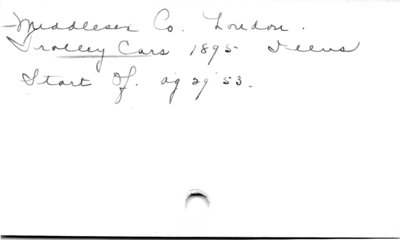 Middlesex Co. London.
Trolley Cars 1895
Start Of. ag 29 '53.